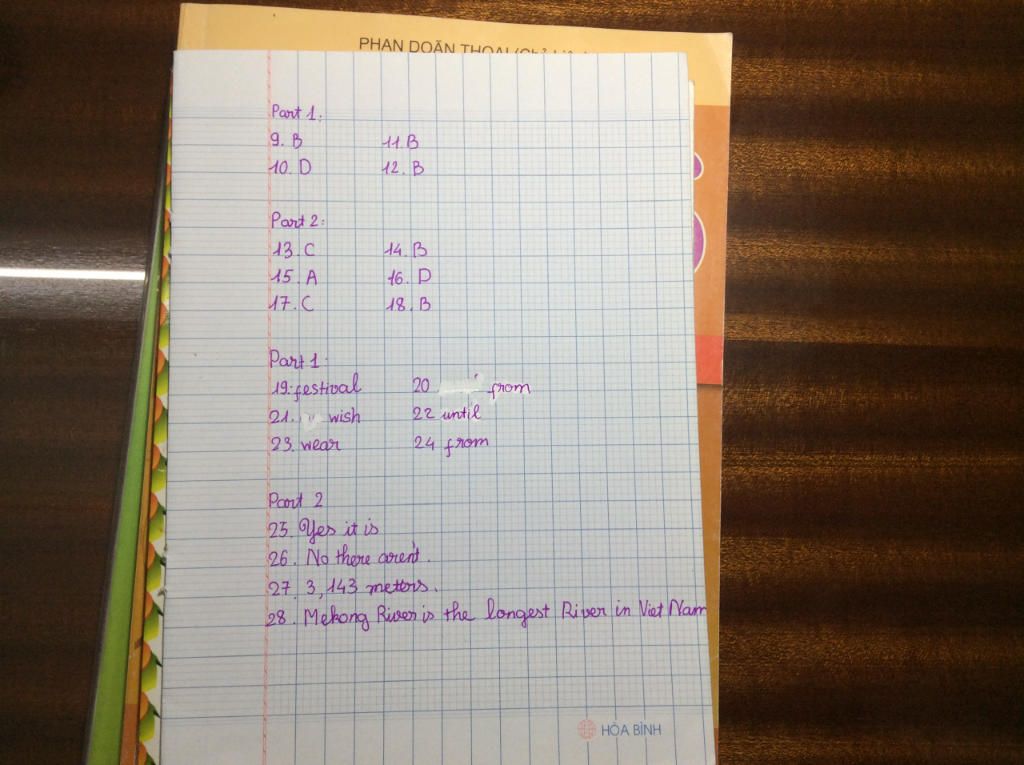 PHAN DOÃN THOẠI
Part 1:
9. B 11. B
10. D 12. B
Part 2:
13. C 14. B
15. A 16. D
17. C 18. B
Part 1:
19. festival 20 from
21. wish 22 until
23. wear 24 from
Part 2
25. Yes it is
26. No there aren't.
27. 3,143 metters.
28. Mekong River is the longest River in Viet Nam
HÒA BÌNH